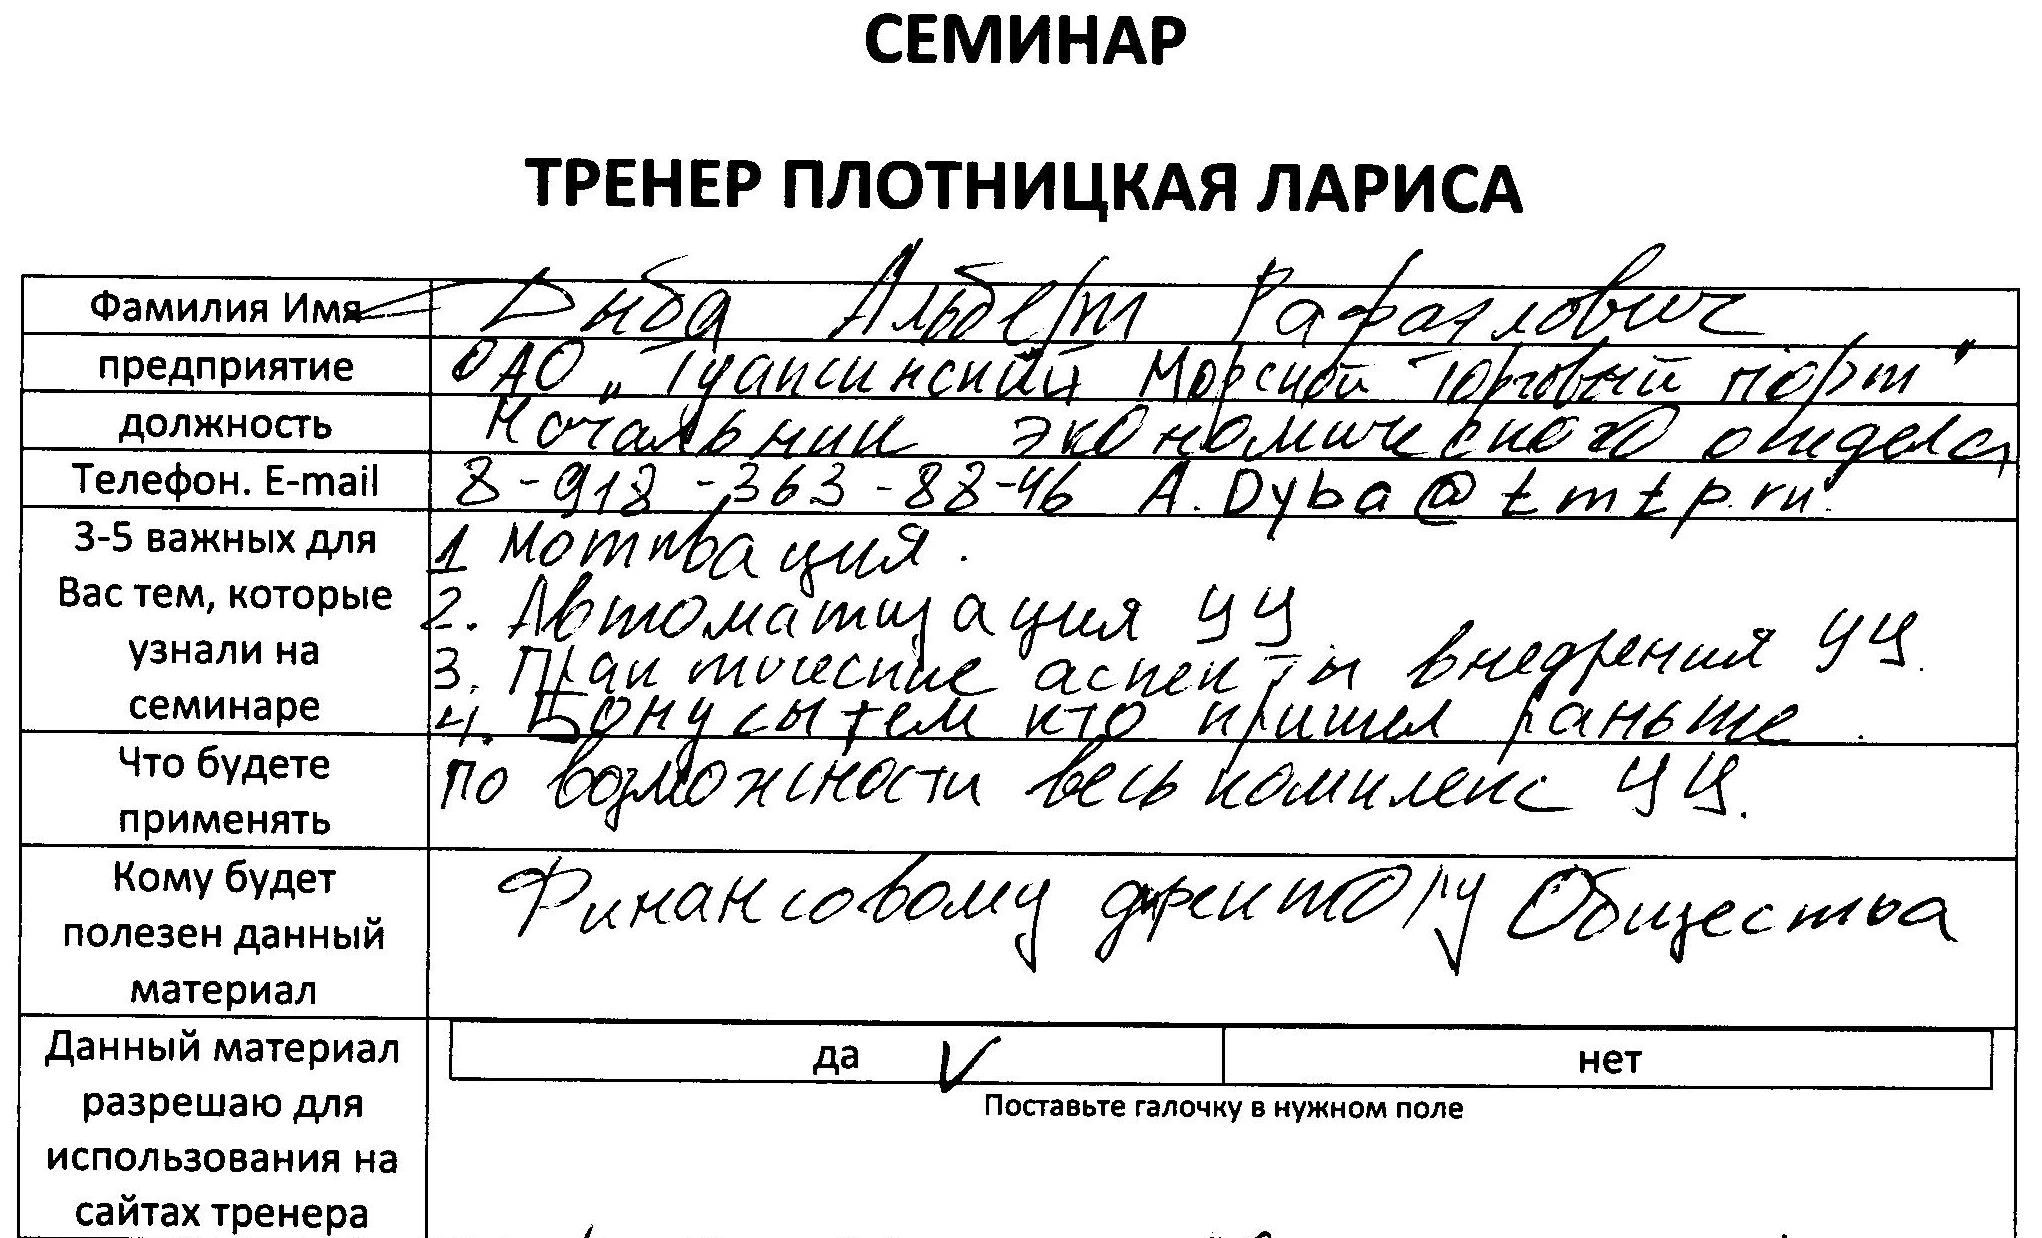 СЕМИНАР
ТРЕНЕР ПЛОТНИЦКАЯ ЛАРИСА
Фамилия Имя Дыба Альберт Рафаэлович
предприятие ОАО "Туапсинский Морской Торговый порт"
должность Начальник экономического отдела
Телефон. E-mail 8-918-363-88-46 A.Dyba@tmtp.ru.
3-5 важных для
Вас тем, которые
узнали на
семинаре
1 Мотивация.
2. Автоматизация УЦ
3. Практические аспекты внедрения УЦ.
4. Бонусы тем кто пришел раньше.
Что будете
применять
По возможности весь комплекс УЦ.
Кому будет
полезен данный
материал
Финансовому директору Общества
Данный материал
разрешаю для
использования на
сайтах тренера
да V нет
Поставьте галочку в нужном поле